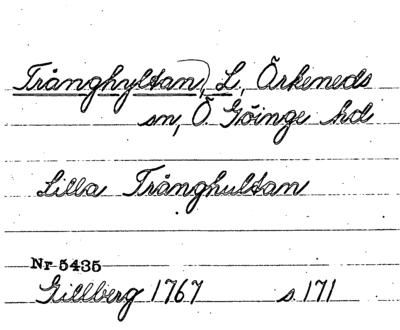 Trånghyltan, L., Örkeneds
sn, Ö. Göinge hd
Lilla Trånghultan
Nr 5435
Gillberg 1767 s. 171